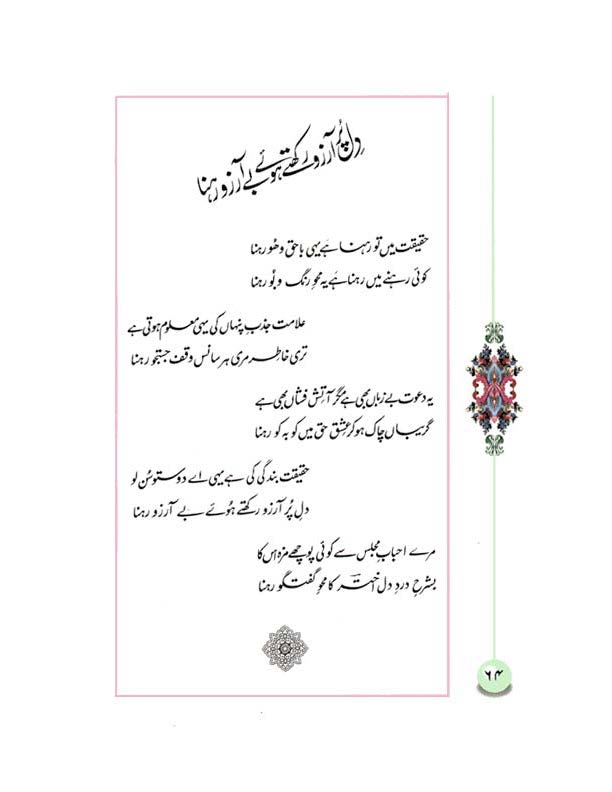 دِل پُر آرزو رکھتے ہوئے بے آرزو رہنا
حقیقت میں تو رہنا ہے یہی باحق و ھُو رہنا
کوئی رہنے میں رہنا ہے یہ محوِ رنگ و بُو رہنا
علامت جذبِ پنہاں کی یہی معلوم ہوتی ہے
تری خاطر مری ہر سانس وقفِ جستجو رہنا
یہ دعوت بے زباں بھی ہے مگر آتش فشاں بھی ہے
گریباں چاک ہوکر عشقِ حق میں کو بہ کو رہنا
حقیقت بندگی کی ہے یہی اے دوستو سُن لو
دلِ پُر آرزو رکھتے ہُوئے بے آرزو رہنا
مرے احبابِ مجلس سے کوئی پوچھے مزہ اس کا
بشرحِ دردِ دل اخترؔ کا محوِ گفتگو رہنا
۶۴